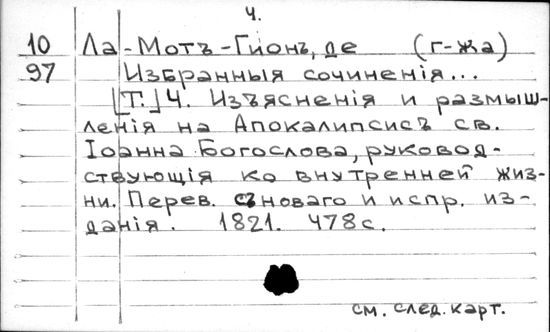 4.
10 Ла-Мотъ-Гионъ, де (г-жа)
97 Избранныя сочиненія...
[Т.] 4. Изъясненія и размыш-
ленія на Апокалипсисъ св.
Іоанна Богослова, руковод-
ствующія ко внутренней жиз-
ни. Перев. съ новаго и испр. из-
данія. 1821. 478с.
см. след. карт.